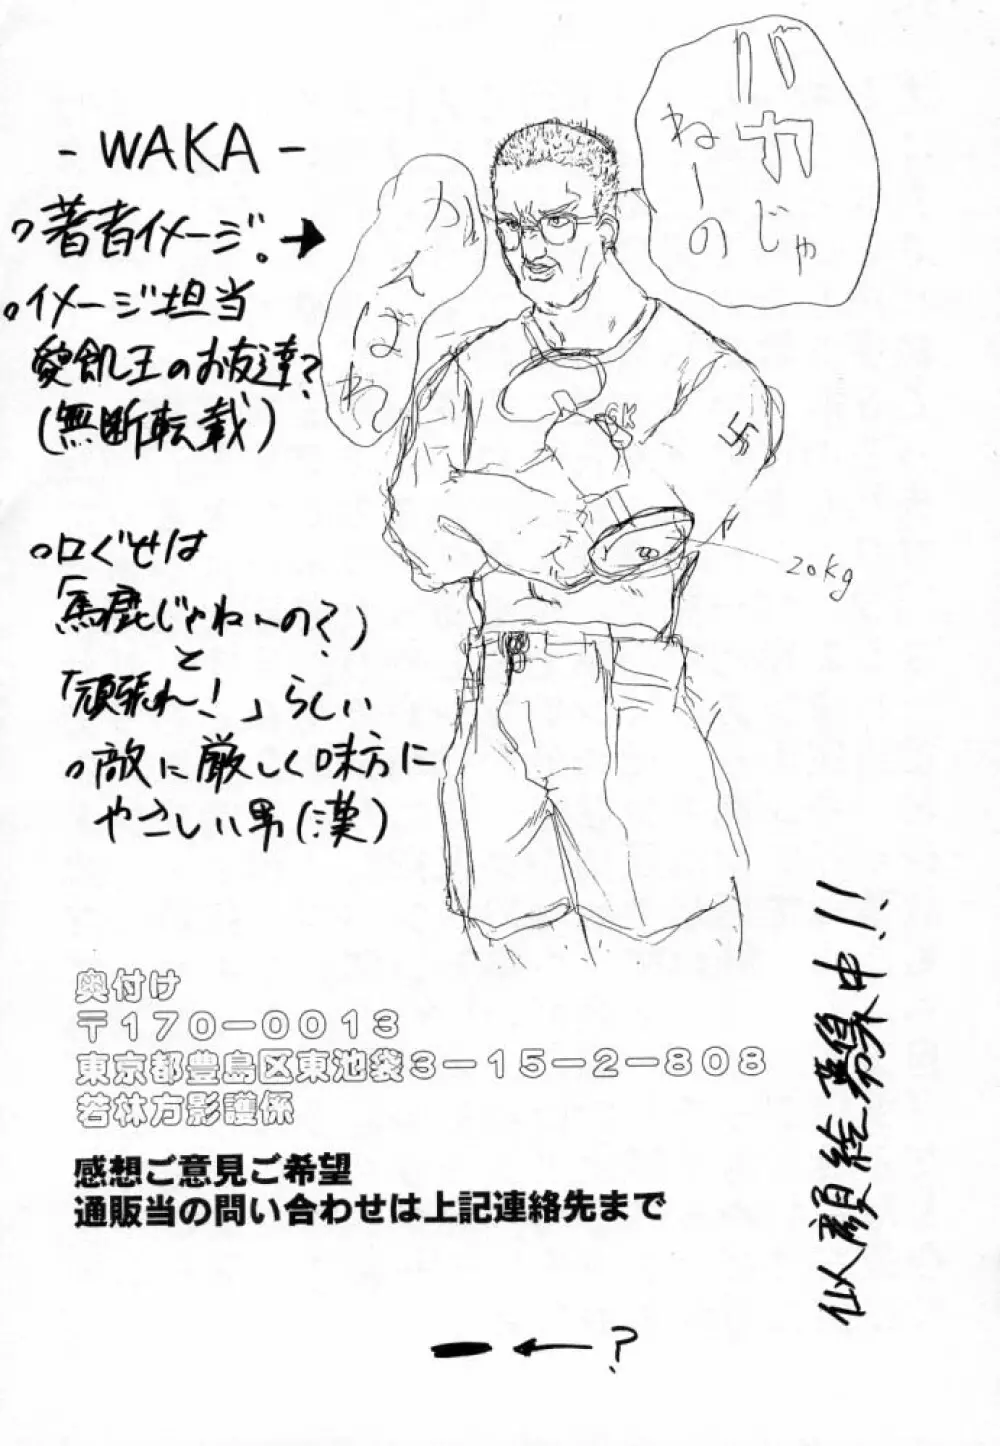 バカじゃ
ねーの
がんばれ
- WAKA -
著者イメージ。→
イメージ担当
餓王のお友達?
(無断転載)
GK
20kg
口ぐせは
「馬鹿じゃねーの?」
と
「頑張れ!」らしい
敵に厳しく味方に
やさしい男(漢)
似顔絵募集中!!
奥付け
〒170-0013
東京都豊島区東池袋3-15-2-808
若林方影護係
感想ご意見ご希望
通販当の問い合わせは上記連絡先まで
←?